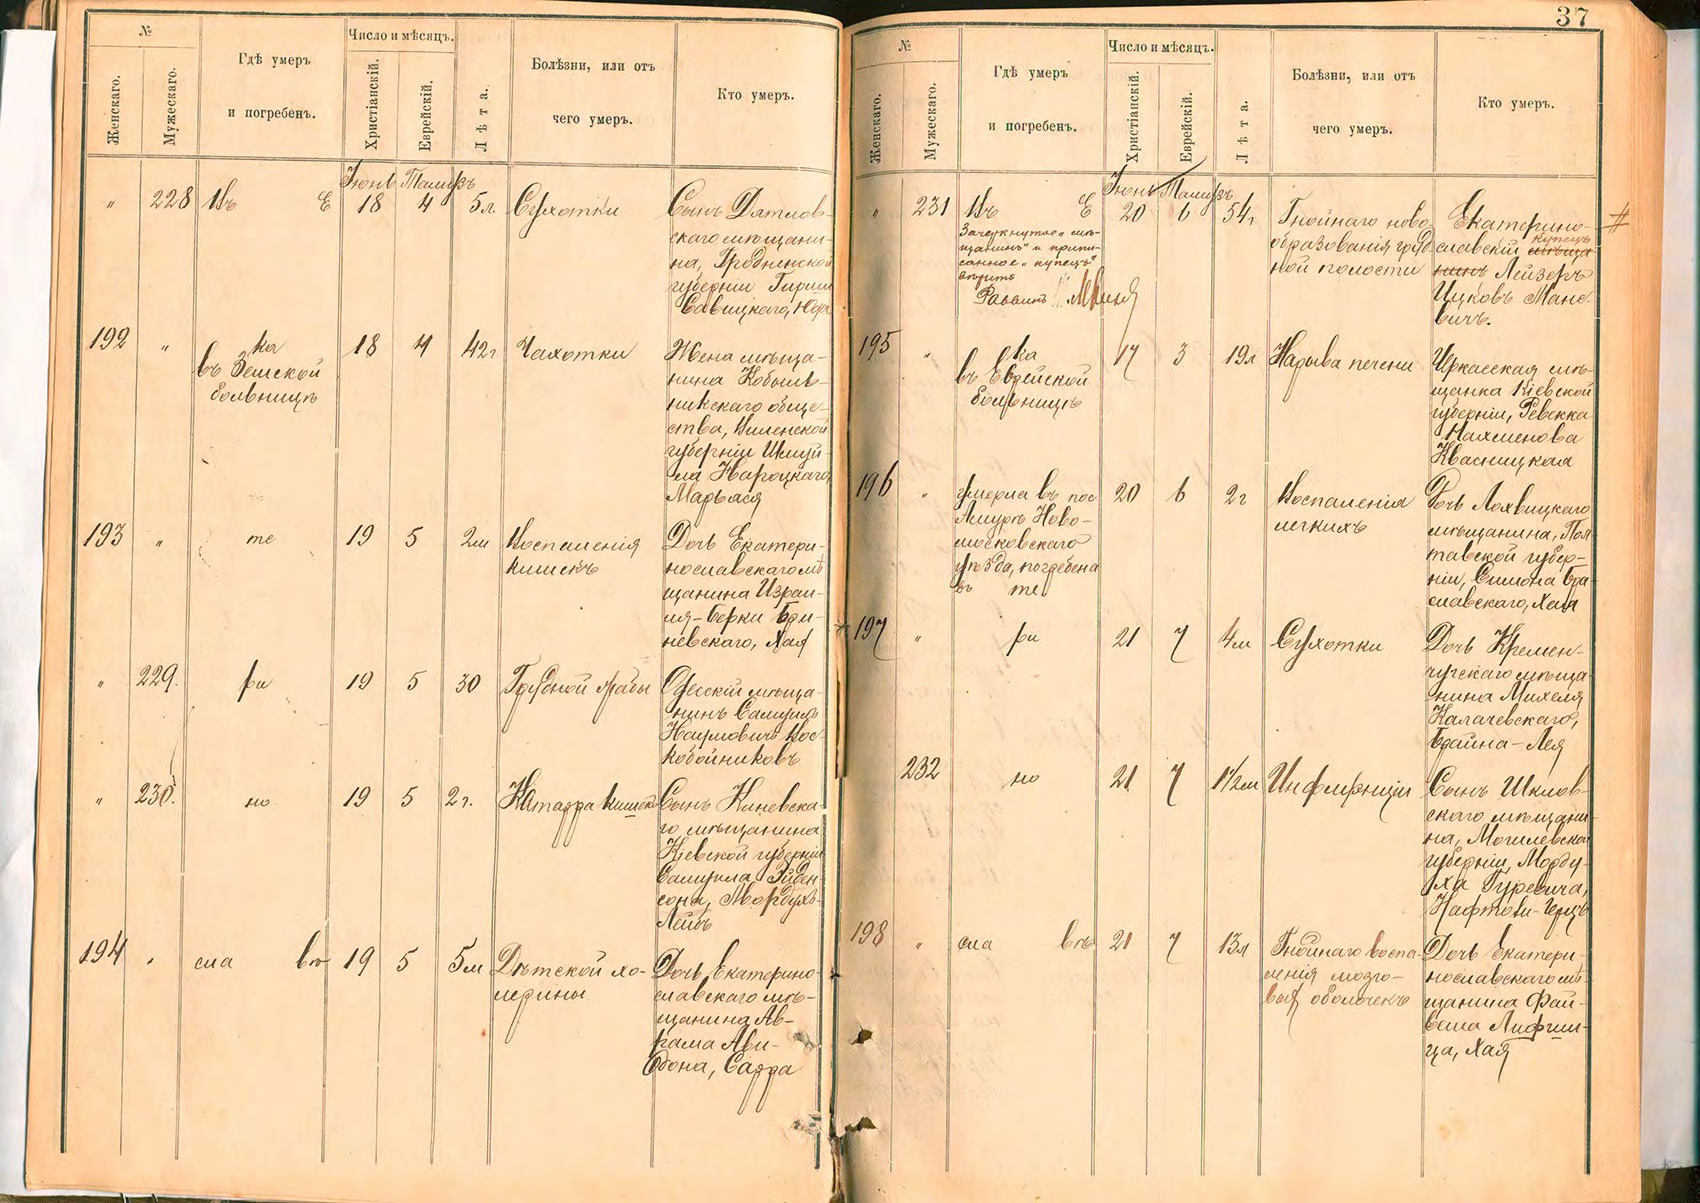 №
Женскаго.
Мужескаго.
Гдѣ умеръ
и погребенъ.
Число и мѣсяцъ.
Христіанскій.
Еврейскій.
Лѣта.
Болѣзни, или отъ
чего умеръ.
Кто умеръ.
Іюнь Тамузъ
" 228 Въ Е 18 4 5л. Сухотки
Сынъ Дятлов-
скаго мѣщани-
на, Гродненской
губерніи Гирши
Савицкаго,
192 " ка 18 4 42г Чахотки
въ Земской
больницѣ
Жена мѣща-
нина Кобыль-
никскаго обще-
ства, Виленской
губерніи Шмуй-
ла Нароцкаго
Марьася
193 " те 19 5 2м Воспаленія
кишекъ
Дочь Екатери-
нославскаго мѣ
щанина Израи-
ля-Берки
невскаго, Хая
" 229. ри 19 5 30 Грудной жабы
Одесскій мѣща-
нинъ Самуилъ
Наумовичъ Вос-
кобойниковъ
" 230. но 19 5 2г. Катарра кишекъ
Сынъ Каневска-
го мѣщанина
Кіевской губерніи
Самуила Эйден-
сона, Мордухъ-
Лейбъ
194 " сла вѣ 19 5 5м Дѣтской хо-
лерины
Дочь Екатерино-
славскаго мѣ-
щанина Ав-
рама Ави-
дона, Сарра
37
№
Женскаго.
Мужескаго.
Гдѣ умеръ
и погребенъ.
Число и мѣсяцъ.
Христіанскій.
Еврейскій.
Лѣта.
Болѣзни, или отъ
чего умеръ.
Кто умеръ.
Іюнь Тамузъ
" 231 Въ Е 20 6 54г
Зачеркнутое „мѣ-
щанинъ" и припи-
санное „купецъ"
вѣрить
Раввинъ
Гнойнаго ново-
образованія груд
ной полости
Екатерино-
славскій купецъ
мѣща
нинъ Лейзеръ
Ицковъ Мане-
вичъ.
195 " ка 17 3 19л Нарыва печени
въ Еврейской
больницѣ
Черкасская мѣ-
щанка Кіевской
губерніи, Ревекка
Нахменова
Квасницкая
196 " умерла въ пос 20 6 2г Воспаленія
легкихъ
Амуръ Ново-
московскаго
уѣзда, погребена
въ те
Дочь Лохвицкаго
мѣщанина, Пол
тавской губер-
ніи, Симона Бра
славскаго, Хая
197 " ри 21 7 4м Сухотки
Дочь Кремен-
чугскаго мѣща
нина Михеля
Калачевскаго,
Брайна-Лея
232 но 21 7 1½м Инфлуэнціи
Сынъ Шклов-
скаго мѣщани
на, Могилевско
губерніи, Морду-
ха Гуревича,
Нафтоли-Герцъ
198 " сла вѣ 21 7 13л Гнойнаго воспа-
ленія мозго-
вых оболочекъ
Дочь Екатери-
нославскаго мѣ
щанина Фай-
веша Лифши-
ца, Хая